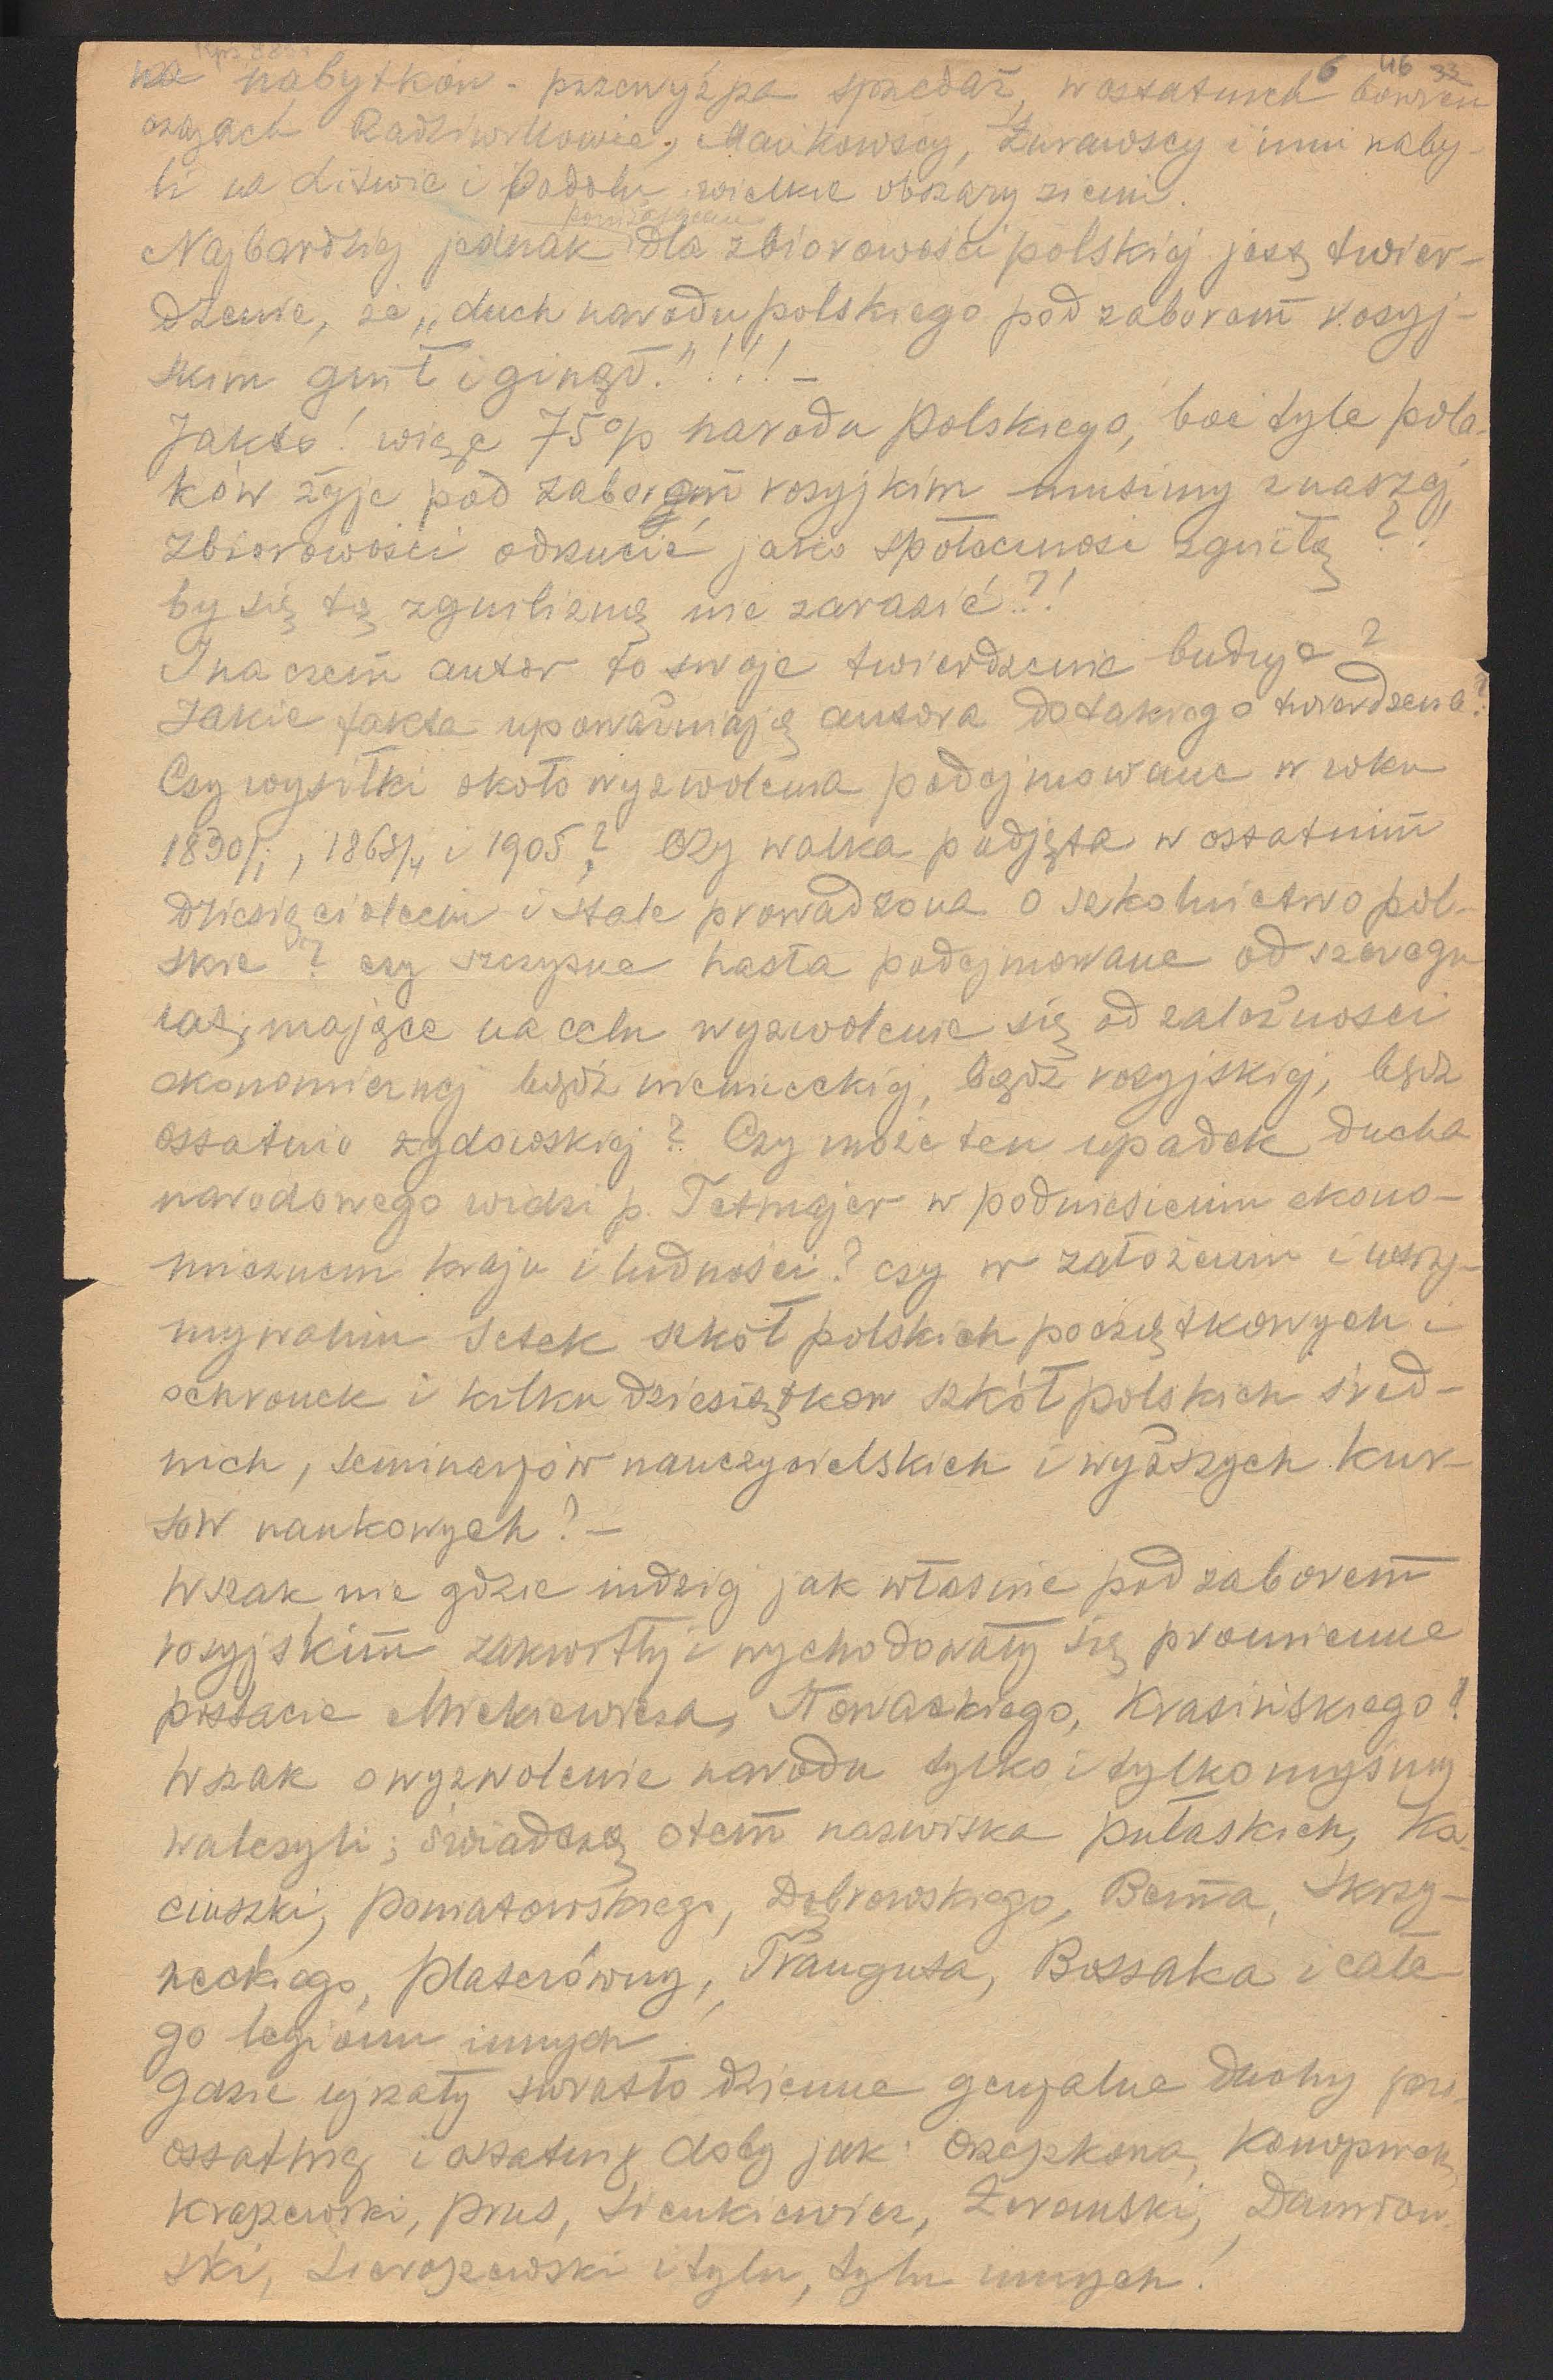 6 46 33
na nabytków - przewyższa sprzedaż, w ostatnich bowiem
czasach Radziwiłłowie, Mańkowscy, Żurawscy i inni naby-
li na Litwie i Podolu wielkie obszary ziemi.
poniżającem
Najbardziej jednak dla zbiorowości polskiej jest twier-
dzenie, że „duch narodu polskiego pod zaborem rosyj-
skim gnił i ginął."!!!! –
Jakto! więc 75% narodu polskiego, boć tyle pola-
ków żyje pod zaborem rosyjkim musimy z naszej
zbiorowości odrzucić jako społeczność zgniłą?!
by się tą zgnilizną nie zarazić?!
I na czem autor to swoje twierdzenie buduje?
Jakie fakta upoważniają autora do takiego twierdzenia?
Czy wysiłki około wyzwolenia podejmowane w roku
1830/1, 1863/4 i 1905? Czy walka podjęta w ostatnim
dziesięcioleciu i stale prowadzona o szkolnictwo pol-
skie? czy szczytne hasła podejmowane od szeregu
lat, mające na celu wyzwolenie się od zależności
ekonomicznej bądź niemieckiej, bądź rosyjskiej, bądź
ostatnio żydowskiej? Czy może ten upadek ducha
narodowego widzi p. Tetmajer w podniesieniu ekono-
micznem kraju i ludności? czy w założeniu i utrzy-
mywaniu setek szkół polskich początkowych i
ochronek i kilku dziesiątków szkół polskich śred-
nich, seminarjów nauczycielskich i wyższych kur-
sów naukowych? –
Wszak nie gdzie indziej jak własnie pod zaborem
rosyjskim zakwitły i wychodowały się promienne
postacie Mickiewicza, Słowackiego, Krasińskiego!
Wszak o wyzwolenie narodu tylko i tylko myśmy
walczyli; świadczą o tem nazwiska Pułaskich, Ko-
ciuszki, Poniatowskiego, Dąbrowskiego, Bema, Skrzy-
neckiego, Platerówny, Trauguta, Bossaka i całe-
go legionu innych!
Gdzie ujrzały światło dzienne genjalne duchy prze-
ostatniej i ostatniej doby jak: Orzeszkowa, Konopnicka,
Kraszewski, Prus, Sienkiewicz, Żeromski, Daniłow-
ski, Sieroszewski i tylu, tylu innych!